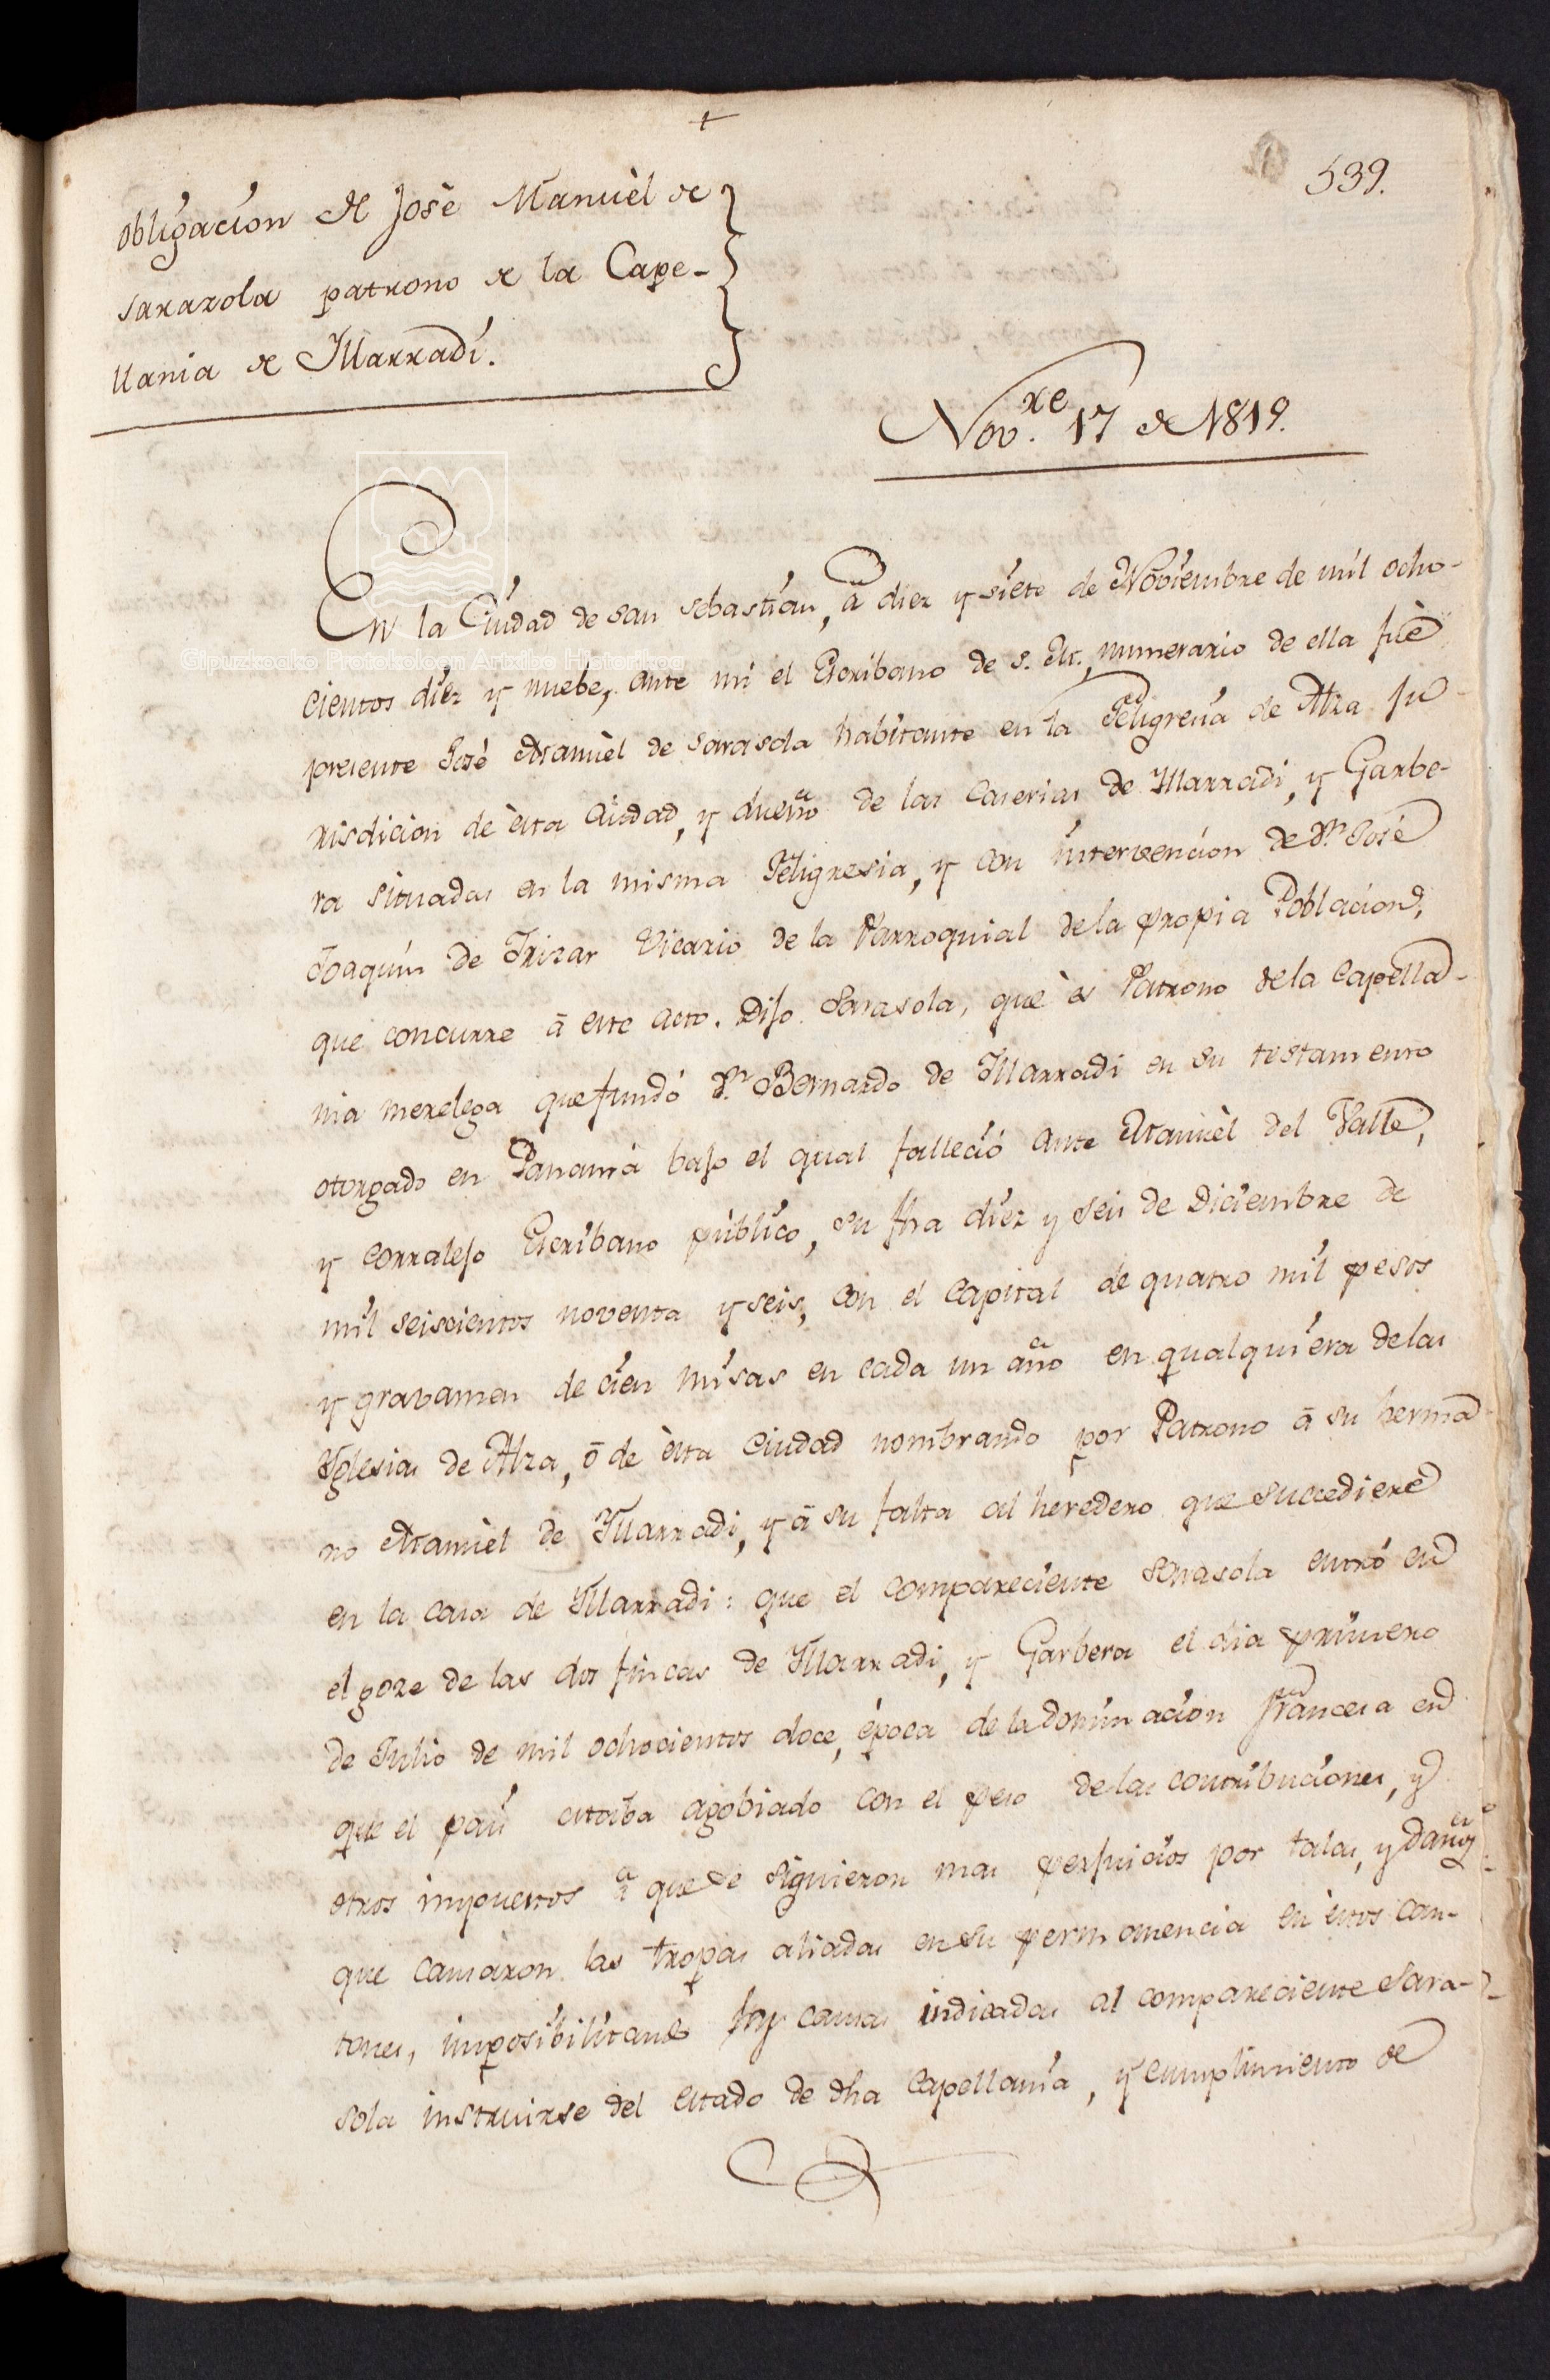 +
539.
obligacion de José Manuèl de
sarazola patrono de la Cape-
llania de Illarradi.
Nov.re 17 de 1819.
En la Ciudad de san sebastian, à diez y siete de Noviembre de mil ocho-
Gipuzkoako Protokoloen Artxibo Historikoa
cientos diez y nuebe, ante mi el Escribano de S. M. numerario de ella fuè
presente José Manuèl de Sarasola habitante en la Feligresia de Alza Ju-
risdicion de èsta Ciudad, y dueño de las Caserias de Illarradi, y Garbe-
ra situadas en la misma Feligresia, y con intervencion de Dn. José
Joaquin de Irizar Vicario de la Parroquial de la propia Poblacion,
que concurre à este acto. Dijo Sarasola, que ès Patrono de la Capella-
nia merelega que fundó Dn. Bernardo de Illarradi en su testamento
otorgado en Panamà bajo el qual falleció ante Manuèl del Valle,
y corralejo Escribano pùblico, su fha diez y seis de Diciembre de
mil seiscientos noventa y seis, con el capital de quatro mil pesos
y gravamen de cien misas en cada un año en qualquiera de las
Yglesias de Alza, ò de èsta Ciudad nombrando por Patrono à su herma-
no Manuèl de Illarradi, y à su falta al heredero que sucediere
en la casa de Illarradi: que el compareciente Sarasola entró en
el goze de las dos fincas de Illarradi, y Garbera el dia primero
de Julio de mil ochocientos doce, època de la dominacion francesa en
que el pais estaba agobiado con el peso de las contribuciones, y
otros impuestos à que se siguieron mas perjuicios por talas, y daños
que causaron las tropas aliadas en su permanencia en èstos can-
tones, imposibilitando las causas indicadas al compareciente Sara-
sola instruirse del estado de dha capellanìa, y cumplimiento de